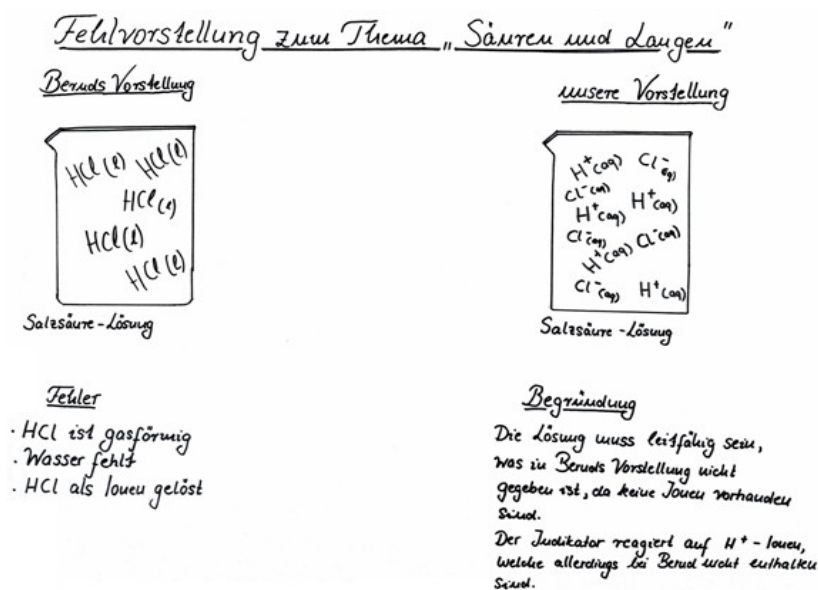 Fehlvorstellung zum Thema „Säuren und Laugen"
Bernds Vorstellung
HCl(l) HCl(l)
HCl(l)
HCl(l)
HCl(l)
Salzsäure-Lösung
Fehler
· HCl ist gasförmig
· Wasser fehlt
· HCl als Ionen gelöst
unsere Vorstellung
H⁺(aq) Cl⁻(aq)
Cl⁻(aq)
H⁺(aq) H⁺(aq)
Cl⁻(aq) Cl⁻(aq)
H⁺(aq)
Cl⁻(aq) H⁺(aq)
Salzsäure-Lösung
Begründung
Die Lösung muss leitfähig sein,
was in Bernds Vorstellung nicht
gegeben ist, da keine Ionen vorhanden
sind.
Der Indikator reagiert auf H⁺-Ionen,
welche allerdings bei Bernd nicht enthalten
sind.